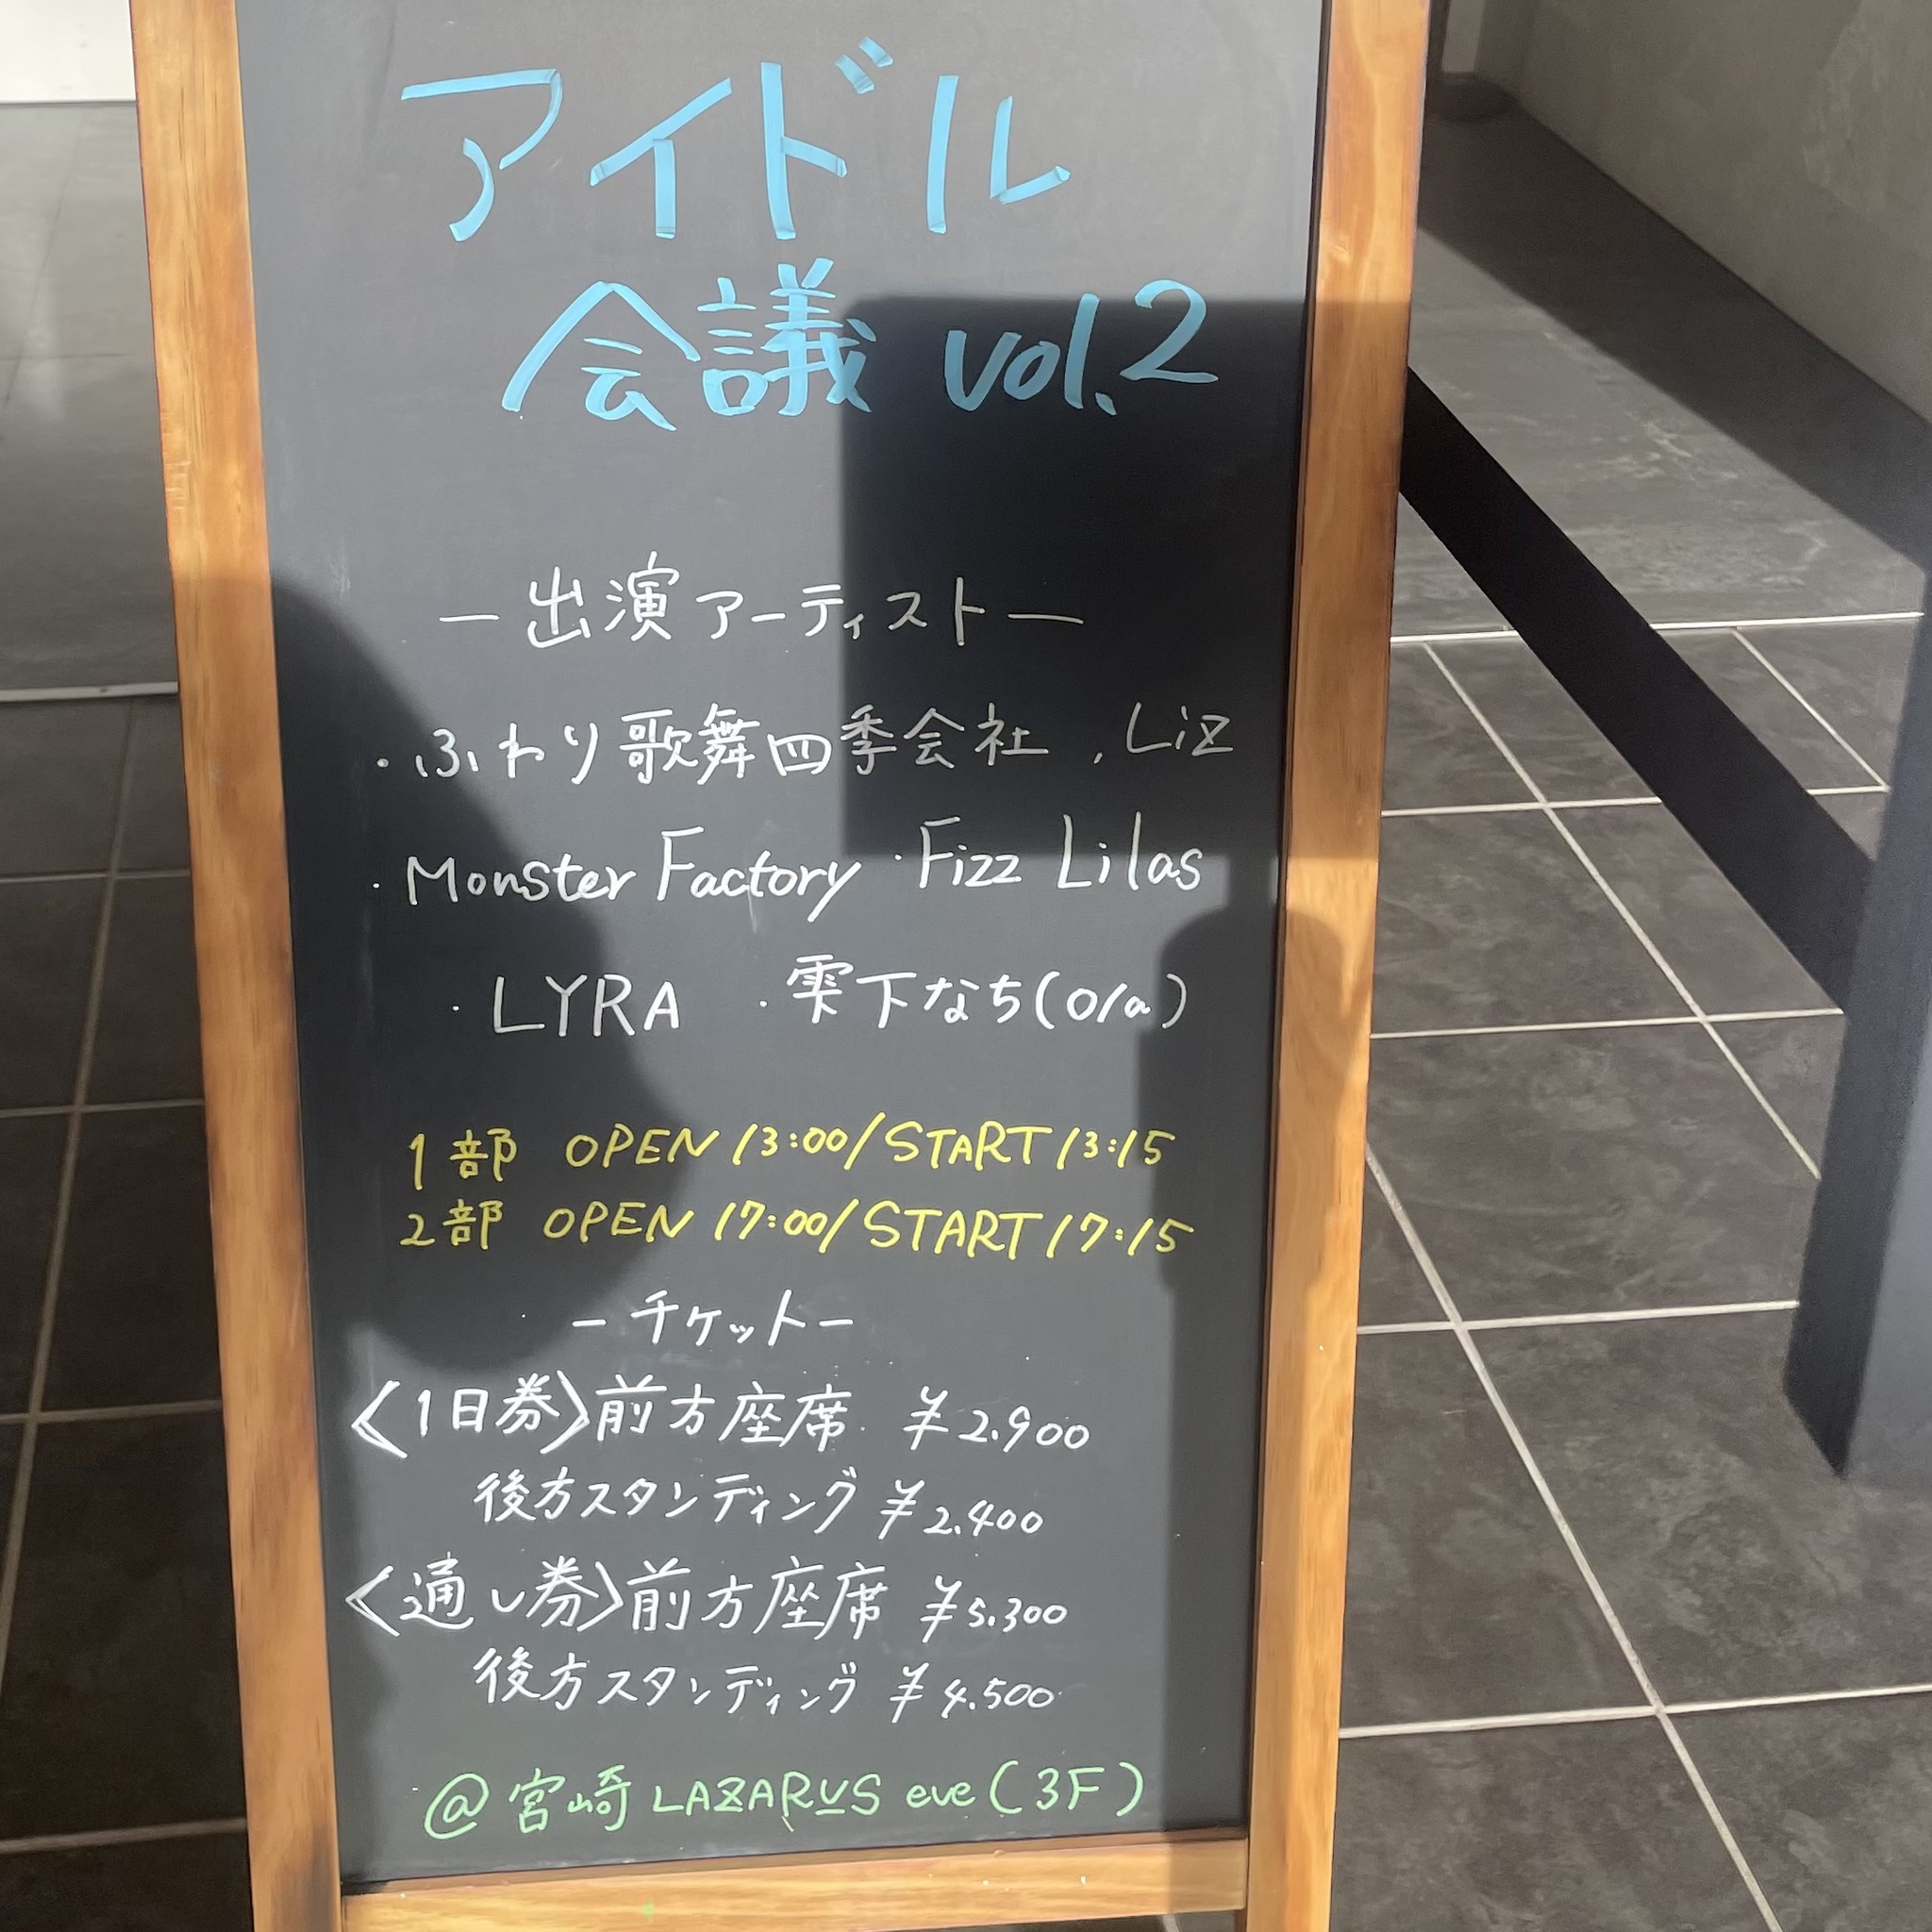 アイドル
会議 vol.2
ー出演アーティストー
・ふわり歌舞四季会社 ・Liz
・Monster Factory ・Fizz Lilas
・LYRA ・雫下なち(o/a)
1部 OPEN 13:00/START 13:15
2部 OPEN 17:00/START 17:15
ーチケットー
〈1日券〉前方座席 ¥2.900
後方スタンディング ¥2.400
〈通し券〉前方座席 ¥5.300
後方スタンディング ¥4.500
@宮崎 LAZARUS eve(3F)